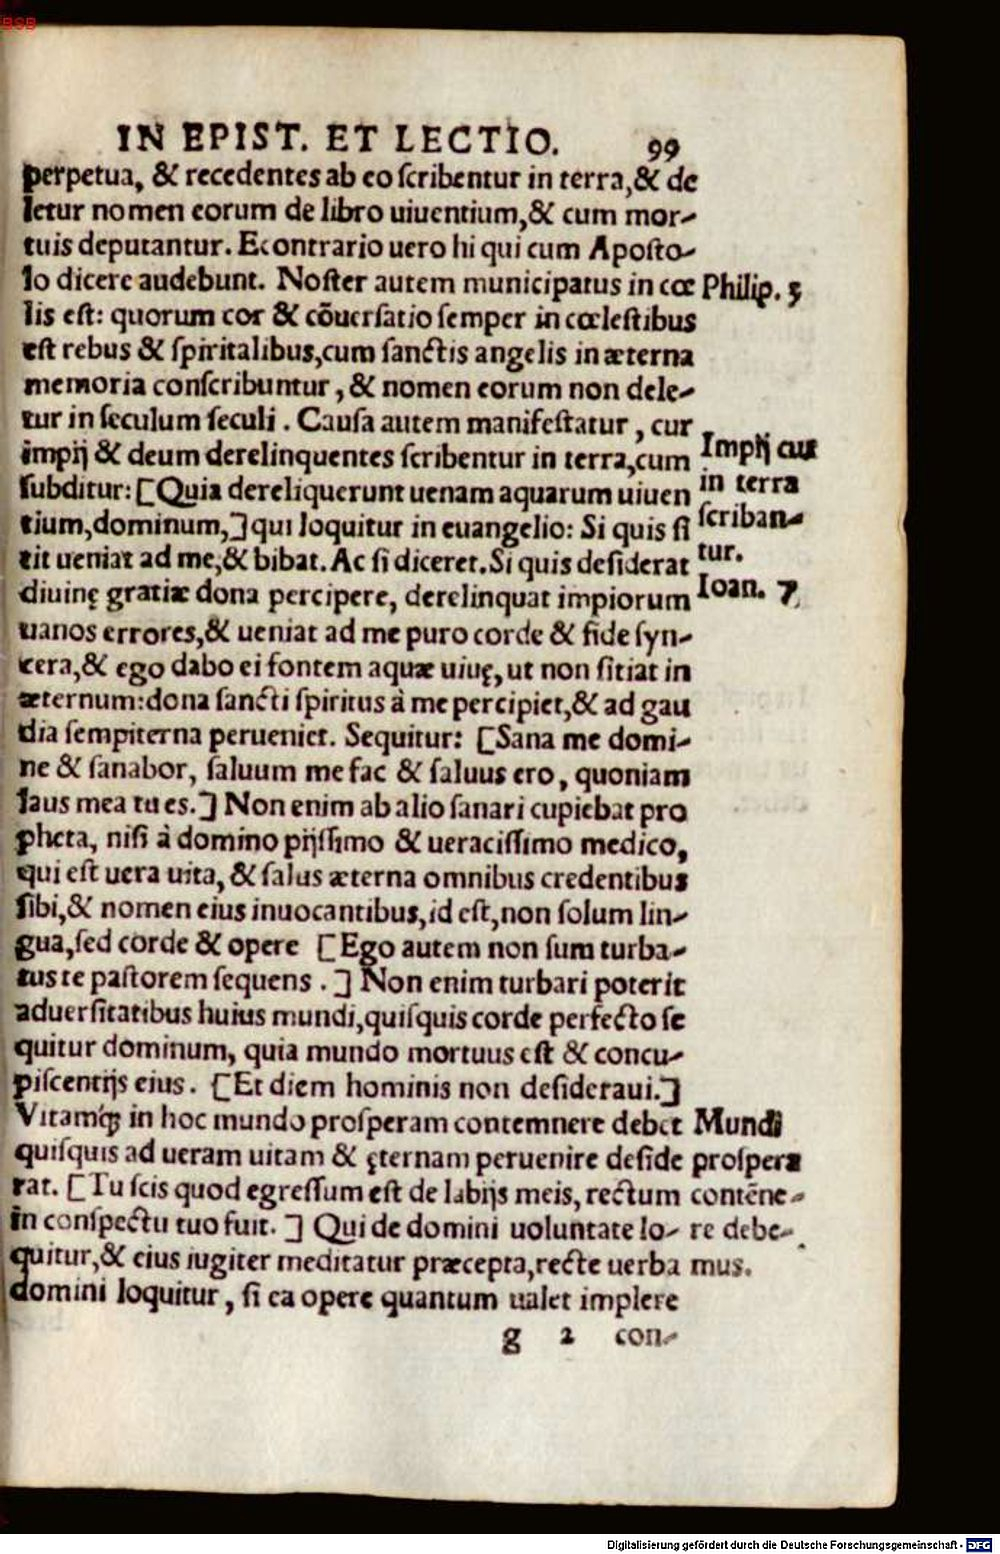 BSB
IN EPIST. ET LECTIO. 99
perpetua, & recedentes ab eo ſcribentur in terra,& de
letur nomen eorum de libro uiuentium,& cum mor-
tuis deputantur. Econtrario uero hi qui cum Apoſto-
lo dicere audebunt. Noſter autem municipatus in cœ
lis eſt: quorum cor & cõuerſatio ſemper in cœleſtibus
eſt rebus & ſpiritalibus,cum ſanctis angelis in æterna
memoria conſcribuntur, & nomen eorum non dele-
tur in ſeculum ſeculi. Cauſa autem manifeſtatur, cur
impij & deum derelinquentes ſcribentur in terra,cum
ſubditur: [Quia dereliquerunt uenam aquarum uiuen
tium,dominum,] qui loquitur in euangelio: Si quis ſi
tit ueniat ad me,& bibat. Ac ſi diceret. Si quis deſiderat
diuinę gratiæ dona percipere, derelinquat impiorum
uanos errores,& ueniat ad me puro corde & fide ſyn-
cera,& ego dabo ei fontem aquæ uiuę, ut non ſitiat in
æternum:dona ſancti ſpiritus à me percipiet,& ad gau
dia ſempiterna perueniet. Sequitur: [Sana me domi-
ne & ſanabor, ſaluum me fac & ſaluus ero, quoniam
laus mea tu es.] Non enim ab alio ſanari cupiebat pro
pheta, niſi à domino pijſſimo & ueraciſſimo medico,
qui eſt uera uita, & ſalus æterna omnibus credentibus
ſibi,& nomen eius inuocantibus,id eſt,non ſolum lin-
gua,ſed corde & opere [Ego autem non ſum turba-
tus te paſtorem ſequens.] Non enim turbari poterit
aduerſitatibus huius mundi,quiſquis corde perfecto ſe
quitur dominum, quia mundo mortuus eſt & concu-
piſcentijs eius. [Et diem hominis non deſideraui.]
Vitamq́ꝫ in hoc mundo proſperam contemnere debet
quiſquis ad ueram uitam & ęternam peruenire deſide
rat. [Tu ſcis quod egreſſum eſt de labijs meis, rectum
in conſpectu tuo fuit.] Qui de domini uoluntate lo-
quitur,& eius iugiter meditatur præcepta,recte uerba
domini loquitur, ſi ea opere quantum ualet implere
g 2 con-
Philip. 3
Impij cur
in terra
ſcriban-
tur.
Ioan. 7
Mundi
proſpera
contẽne-
re debe-
mus.
Digitalisierung gefördert durch die Deutsche Forschungsgemeinschaft - DFG